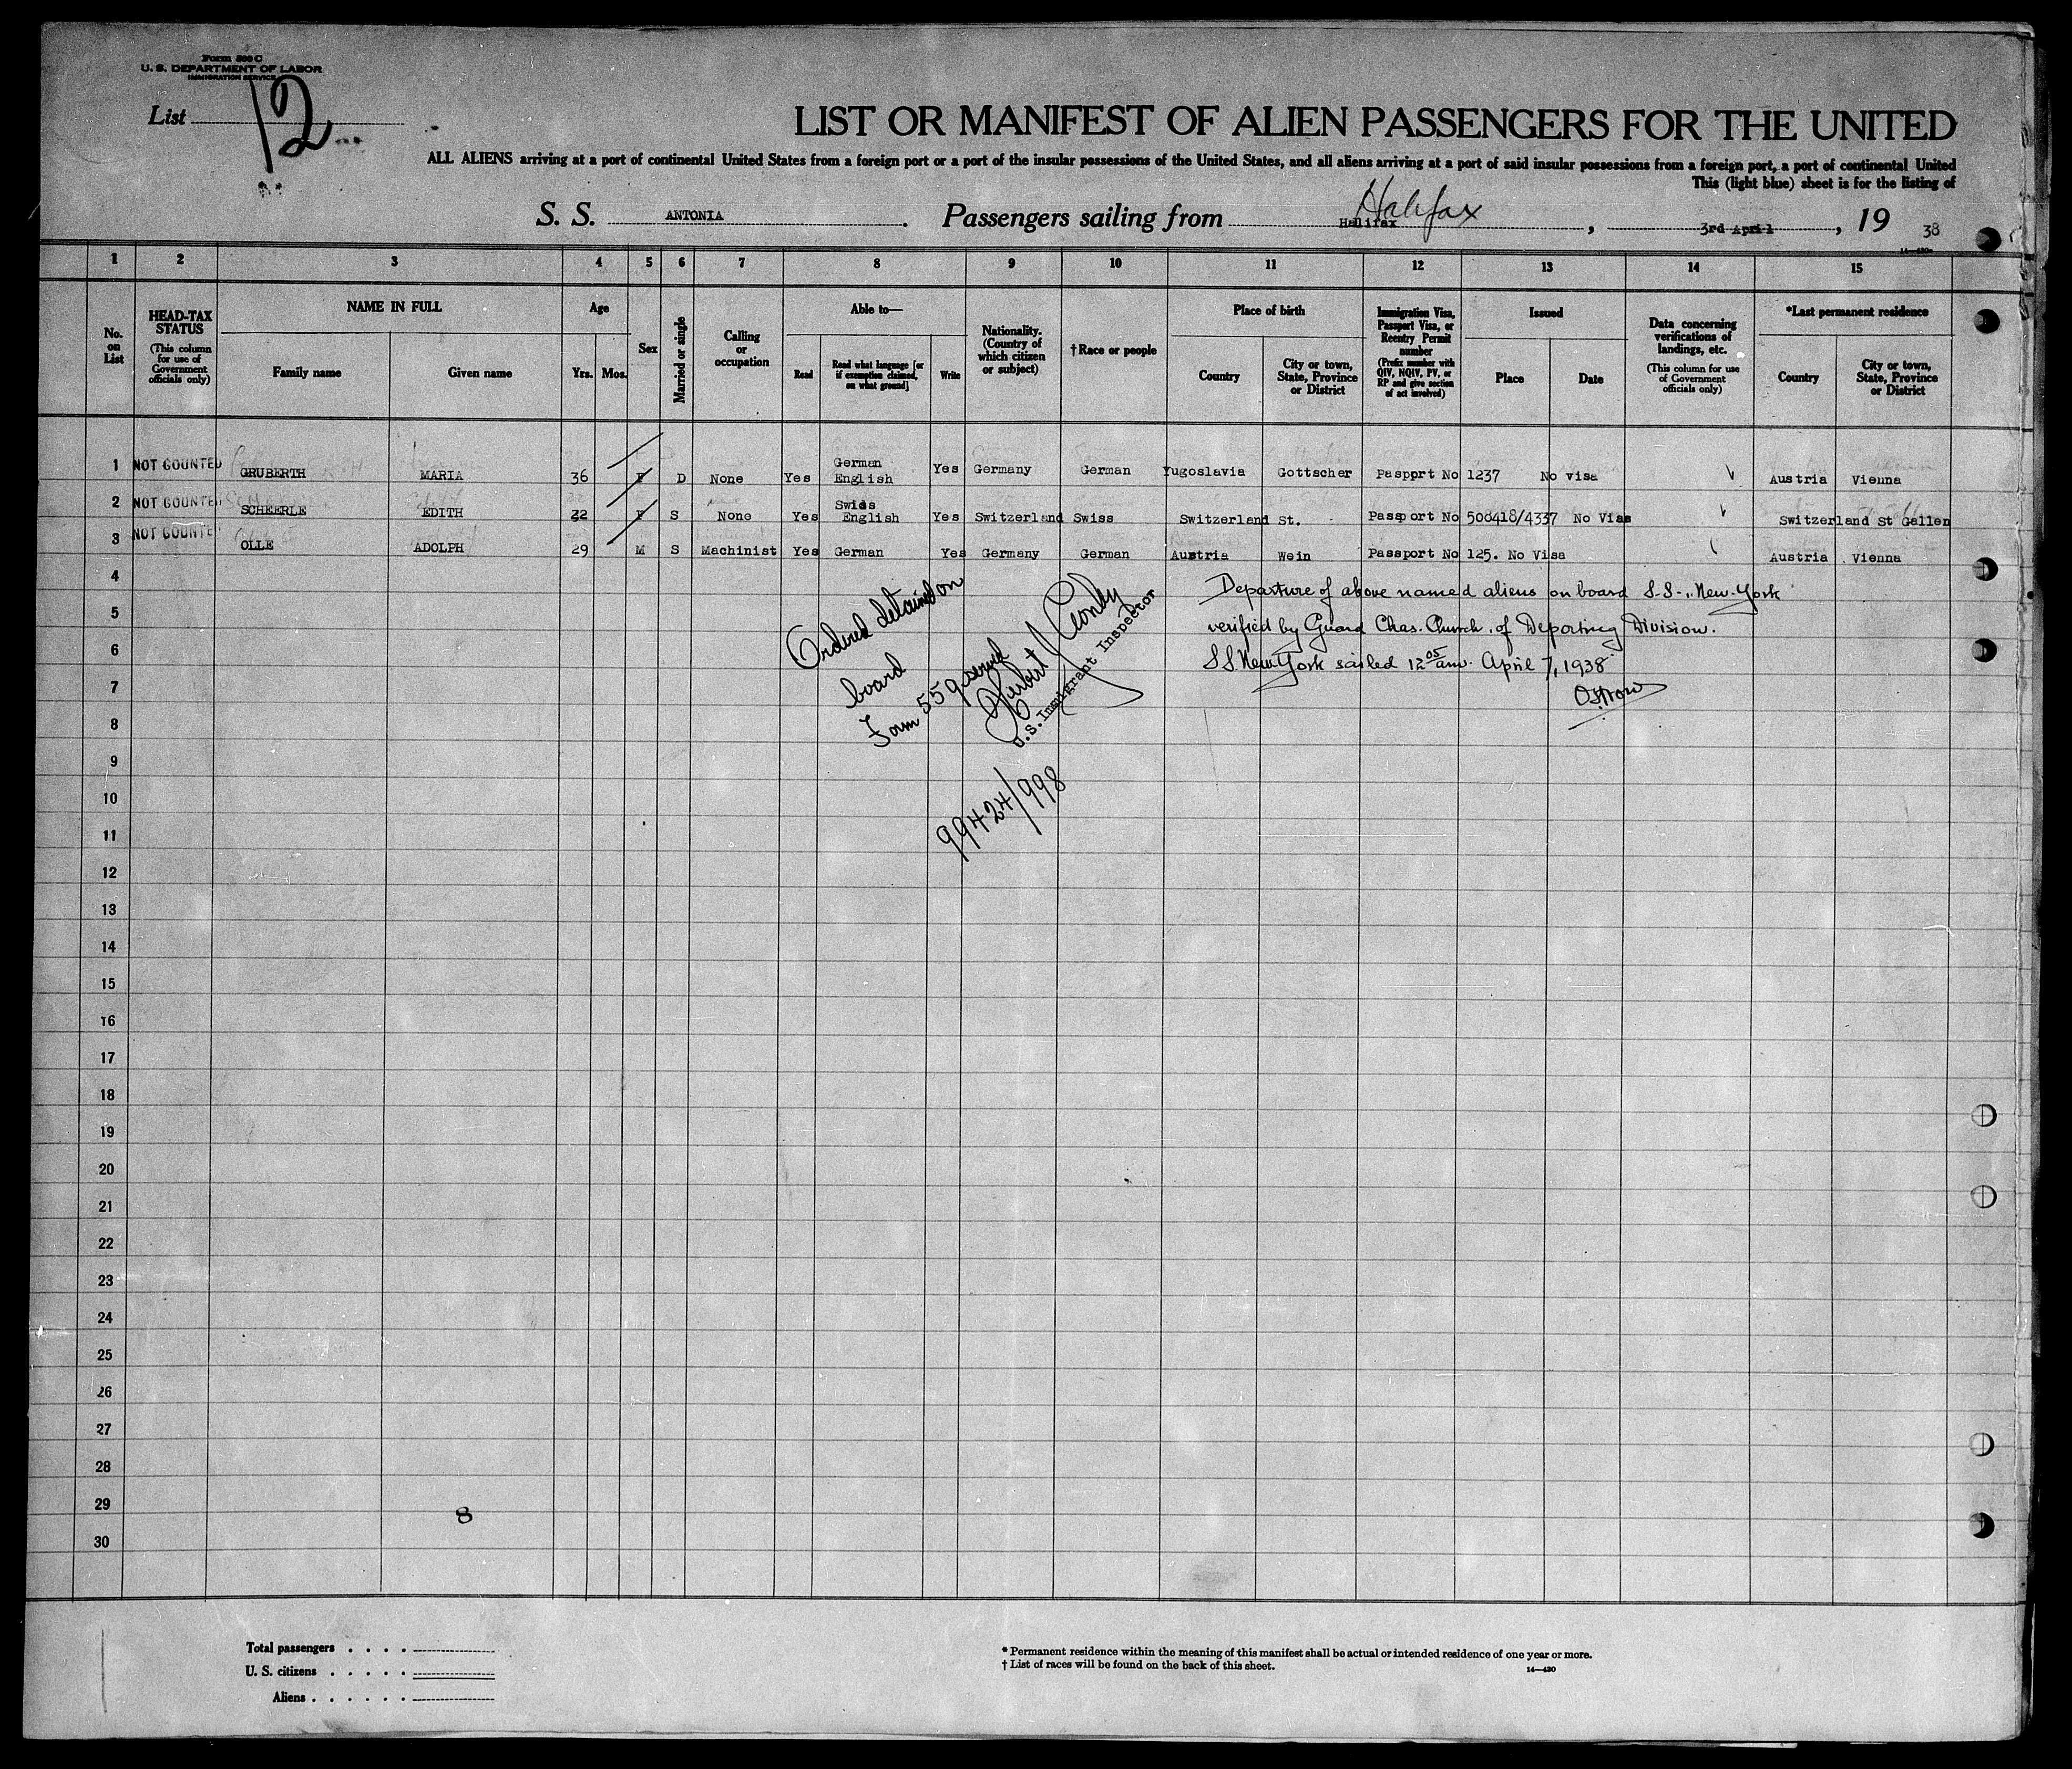 Form 500 C
U. S. DEPARTMENT OF LABOR
IMMIGRATION SERVICE
List 12
LIST OR MANIFEST OF ALIEN PASSENGERS FOR THE UNITED
ALL ALIENS arriving at a port of continental United States from a foreign port or a port of the insular possessions of the United States, and all aliens arriving at a port of said insular possessions from a foreign port, a port of continental United
This (light blue) sheet is for the listing of
S. S. ANTONIA. Passengers sailing from Halifax Halifax, 3rd April, 19 38
1 2 3 4 5 6 7 8 9 10 11 12 13 14 15
No. on List
HEAD-TAX STATUS (This column for use of Government officials only)
NAME IN FULL
Family name Given name
Age
Yrs. Mos.
Sex
Married or single
Calling or occupation
Able to—
Read Read what language [or if exemption claimed, on what ground] Write
Nationality. (Country of which citizen or subject)
†Race or people
Place of birth
Country City or town, State, Province or District
Immigration Visa, Passport Visa, or Reentry Permit number (Prefix number with QIV, NQIV, PV, or RP and give section of act involved)
Issued
Place Date
Data concerning verifications of landings, etc. (This column for use of Government officials only)
*Last permanent residence
Country City or town, State, Province or District
1 NOT COUNTED GRUBERTH MARIA 36 F D None Yes German English Yes Germany German Yugoslavia Gottscher Passport No 1237 No visa Austria Vienna
2 NOT COUNTED SCHEERLE EDITH 22 F S None Yes Swiss English Yes Switzerland Swiss Switzerland St. Passport No 508418/4337 No Visa Switzerland St Gallen
3 NOT COUNTE OLLE ADOLPH 29 M S Machinist Yes German Yes Germany German Austria Wein Passport No 125. No Visa Austria Vienna
4
5
6
7
8
9
10
11
12
13
14
15
16
17
18
19
20
21
22
23
24
25
26
27
28
29
30
Ordered detained on
board
Form 559 served
Herbert J
U.S. Immigrant Inspector
99424/998
Departure of above named aliens on board S.S. New York
verified by Guard Chas. Church of Deporting Division.
S S New York sailed 12 05 am. April 7, 1938
8
Total passengers
U. S. citizens
Aliens
* Permanent residence within the meaning of this manifest shall be actual or intended residence of one year or more.
† List of races will be found on the back of this sheet.
14—430